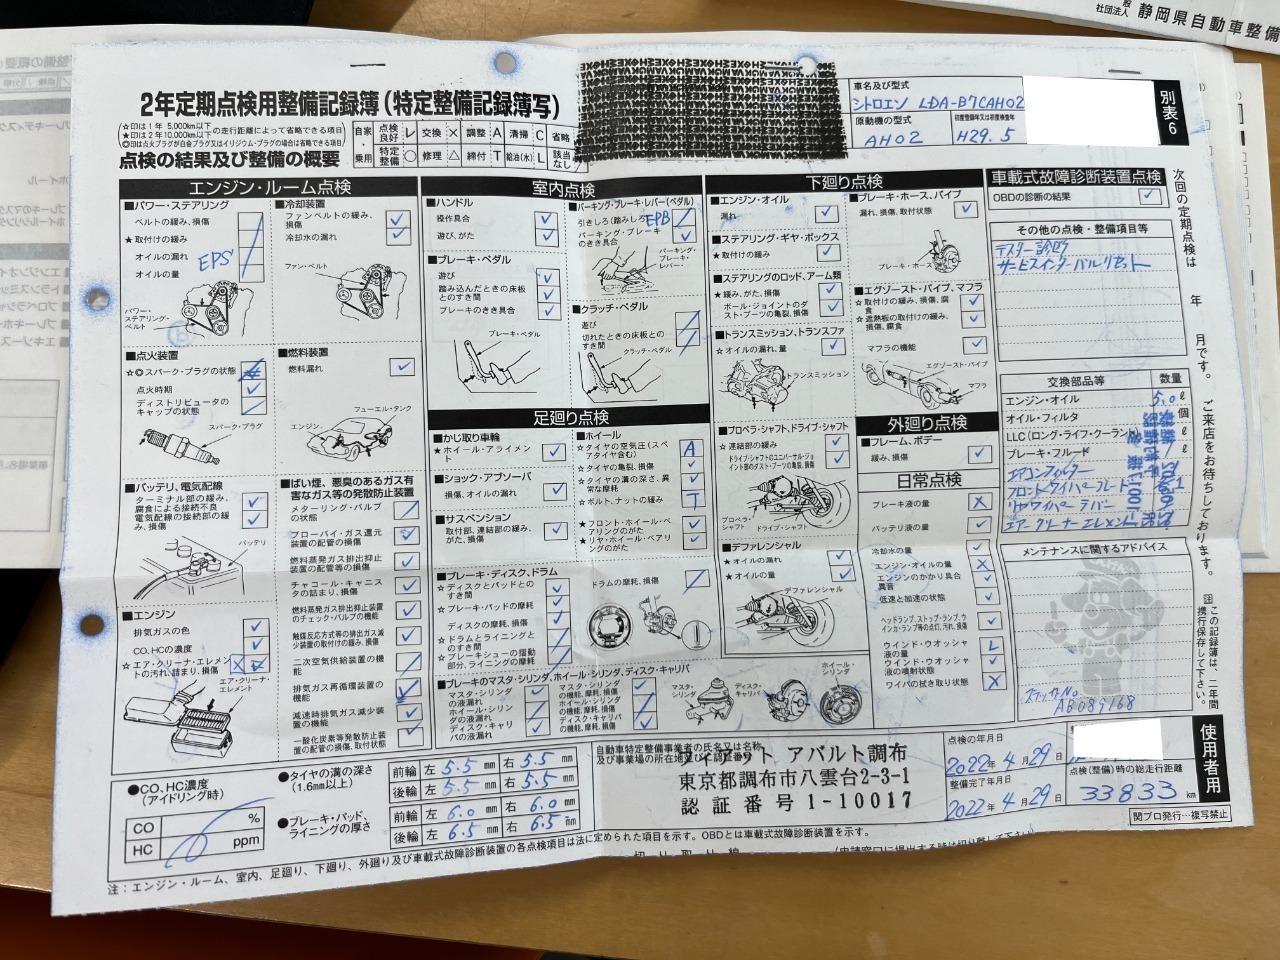 静岡県自動車整備
社団法人
2年定期点検用整備記録簿(特定整備記録簿写)
☆印は1年 5,000km以下
★印は2年10,000km以下
の走行距離によって省略できる項目
◎印は点火プラグが白金プラグ又はイリジウム・プラグの場合は省略できる項目
点検の結果及び整備の概要
自家・乗用
点検良好 レ 交換 × 調整 A 清掃 C 省略
特定整備 ○ 修理 △ 締付 T 給油(水) L 該当なし
車名及び型式
シトロエン LDA-B7CAH02
原動機の型式
AH02
初度登録年又は初度検査年
H29.5
別表6
エンジン・ルーム点検
■パワー・ステアリング
ベルトの緩み、損傷
★取付けの緩み
オイルの漏れ
オイルの量
EPS
パワー・ステアリング・ベルト
■冷却装置
ファンベルトの緩み、損傷
冷却水の漏れ
ファン・ベルト
■点火装置
☆◎スパーク・プラグの状態
点火時期
ディストリビュータのキャップの状態
スパーク・プラグ
■燃料装置
燃料漏れ
フューエル・タンク
エンジン
■バッテリ、電気配線
ターミナル部の緩み、腐食による接続不良
電気配線の接続部の緩み、損傷
バッテリ
■エンジン
排気ガスの色
CO、HCの濃度
☆エア・クリーナ・エレメントの汚れ、詰まり、損傷
エア・クリーナ・エレメント
■ばい煙、悪臭のあるガス有害なガス等の発散防止装置
メターリング・バルブの状態
ブローバイ・ガス還元装置の配管の損傷
燃料蒸発ガス排出抑止装置の配管等の損傷
チャコール・キャニスタの詰まり、損傷
燃料蒸発ガス排出抑止装置のチェック・バルブの機能
触媒反応方式等の排出ガス減少装置の取付けの緩み、損傷
二次空気供給装置の機能
排気ガス再循環装置の機能
減速時排気ガス減少装置の機能
一酸化炭素等発散防止装置の配管の損傷、取付状態
室内点検
■ハンドル
操作具合
遊び、がた
■ブレーキ・ペダル
遊び
踏み込んだときの床板とのすき間
ブレーキのきき具合
ブレーキ・ペダル
■パーキング・ブレーキ・レバー(ペダル)
引きしろ(踏みしろ)
EPB
パーキング・ブレーキのきき具合
パーキング・ブレーキ・レバー
■クラッチ・ペダル
遊び
切れたときの床板とのすき間
クラッチ・ペダル
足廻り点検
■かじ取り車輪
★ホイール・アライメント
■ショック・アブソーバ
損傷、オイルの漏れ
■サスペンション
取付部、連結部の緩み、がた、損傷
■ホイール
☆タイヤの空気圧(スペアタイヤ含む)
A
☆タイヤの亀裂、損傷
☆タイヤの溝の深さ、異常な摩耗
☆ボルト、ナットの緩み
T
★フロント・ホイール・ベアリングのがた
★リヤ・ホイール・ベアリングのがた
■ブレーキ・ディスク、ドラム
☆ディスクとパッドとのすき間
☆ブレーキ・パッドの摩耗
ディスクの摩耗、損傷
☆ドラムとライニングとのすき間
☆ブレーキシューの摺動部分、ライニングの摩耗
ドラムの摩耗、損傷
■ブレーキのマスタ・シリンダ、ホイール・シリンダ、ディスク・キャリパ
マスタ・シリンダの液漏れ
ホイール・シリンダの液漏れ
ディスク・キャリパの液漏れ
マスタ・シリンダの機能、摩耗、損傷
ホイール・シリンダの機能、摩耗、損傷
ディスク・キャリパの機能、摩耗、損傷
マスタ・シリンダ
ディスク・キャリパ
ホイール・シリンダ
下廻り点検
■エンジン・オイル
漏れ
■ステアリング・ギヤ・ボックス
★取付けの緩み
■ステアリングのロッド、アーム類
★緩み、がた、損傷
ボール・ジョイントのダスト・ブーツの亀裂、損傷
■トランスミッション、トランスファ
☆オイルの漏れ、量
トランスミッション
■プロペラ・シャフト、ドライブ・シャフト
☆連結部の緩み
ドライブ・シャフトのユニバーサル・ジョイント部のダスト・ブーツの亀裂、損傷
プロペラ・シャフト
ドライブ・シャフト
■デファレンシャル
☆オイルの漏れ
☆オイルの量
デファレンシャル
■ブレーキ・ホース、パイプ
漏れ、損傷、取付状態
ブレーキ・ホース
■エグゾースト・パイプ、マフラ
☆取付けの緩み、損傷、腐食
☆遮熱板の取付けの緩み、損傷、腐食
マフラの機能
エグゾースト・パイプ
マフラ
外廻り点検
■フレーム、ボデー
緩み、損傷
日常点検
ブレーキ液の量
バッテリ液の量
冷却水の量
エンジン・オイルの量
エンジンのかかり具合 異音
低速と加速の状態
ヘッドランプ、ストップ・ランプ、ウインカ・ランプ等の点灯、汚れ、損傷
ウインド・ウオッシャ液の量
L
ウインド・ウオッシャ液の噴射状態
ワイパの拭き取り状態
車載式故障診断装置点検
OBDの診断の結果
その他の点検・整備項目等
テスター診断
サービスインターバルリセット
交換部品等 数量
エンジン・オイル 5.0 ℓ
オイル・フィルタ 個
LLC(ロング・ライフ・クーラント) ℓ
ブレーキ・フルード ℓ
エアコンフィルター
フロントワイパーブレード
リヤワイパーラバー
エアークリーナーエレメント
メンテナンスに関するアドバイス
ステッカーNo
AB089168
次回の定期点検は 年 月です。 ご来店をお待ちしております。
注 この記録簿は、二年間携行保存して下さい。
使用者用
●CO、HC濃度(アイドリング時)
CO %
HC ppm
●タイヤの溝の深さ(1.6mm以上)
前輪 左 5.5 mm 右 5.5 mm
後輪 左 5.5 mm 右 5.5 mm
●ブレーキ・パッド、ライニングの厚さ
前輪 左 6.0 mm 右 6.0 mm
後輪 左 6.5 mm 右 6.5 mm
自動車特定整備事業者の氏名又は名称及び事業場の所在地並びに認証番号
フィアット アバルト調布
東京都調布市八雲台2-3-1
認証番号 1-10017
点検の年月日
2022年 4月 29日
整備完了年月日
2022年 4月 29日
点検(整備)時の総走行距離
33833 km
関プロ発行…複写禁止
注:エンジン・ルーム、室内、足廻り、下廻り、外廻り及び車載式故障診断装置の各点検項目は法に定められた項目を示す。OBDとは車載式故障診断装置を示す。
切り取り線